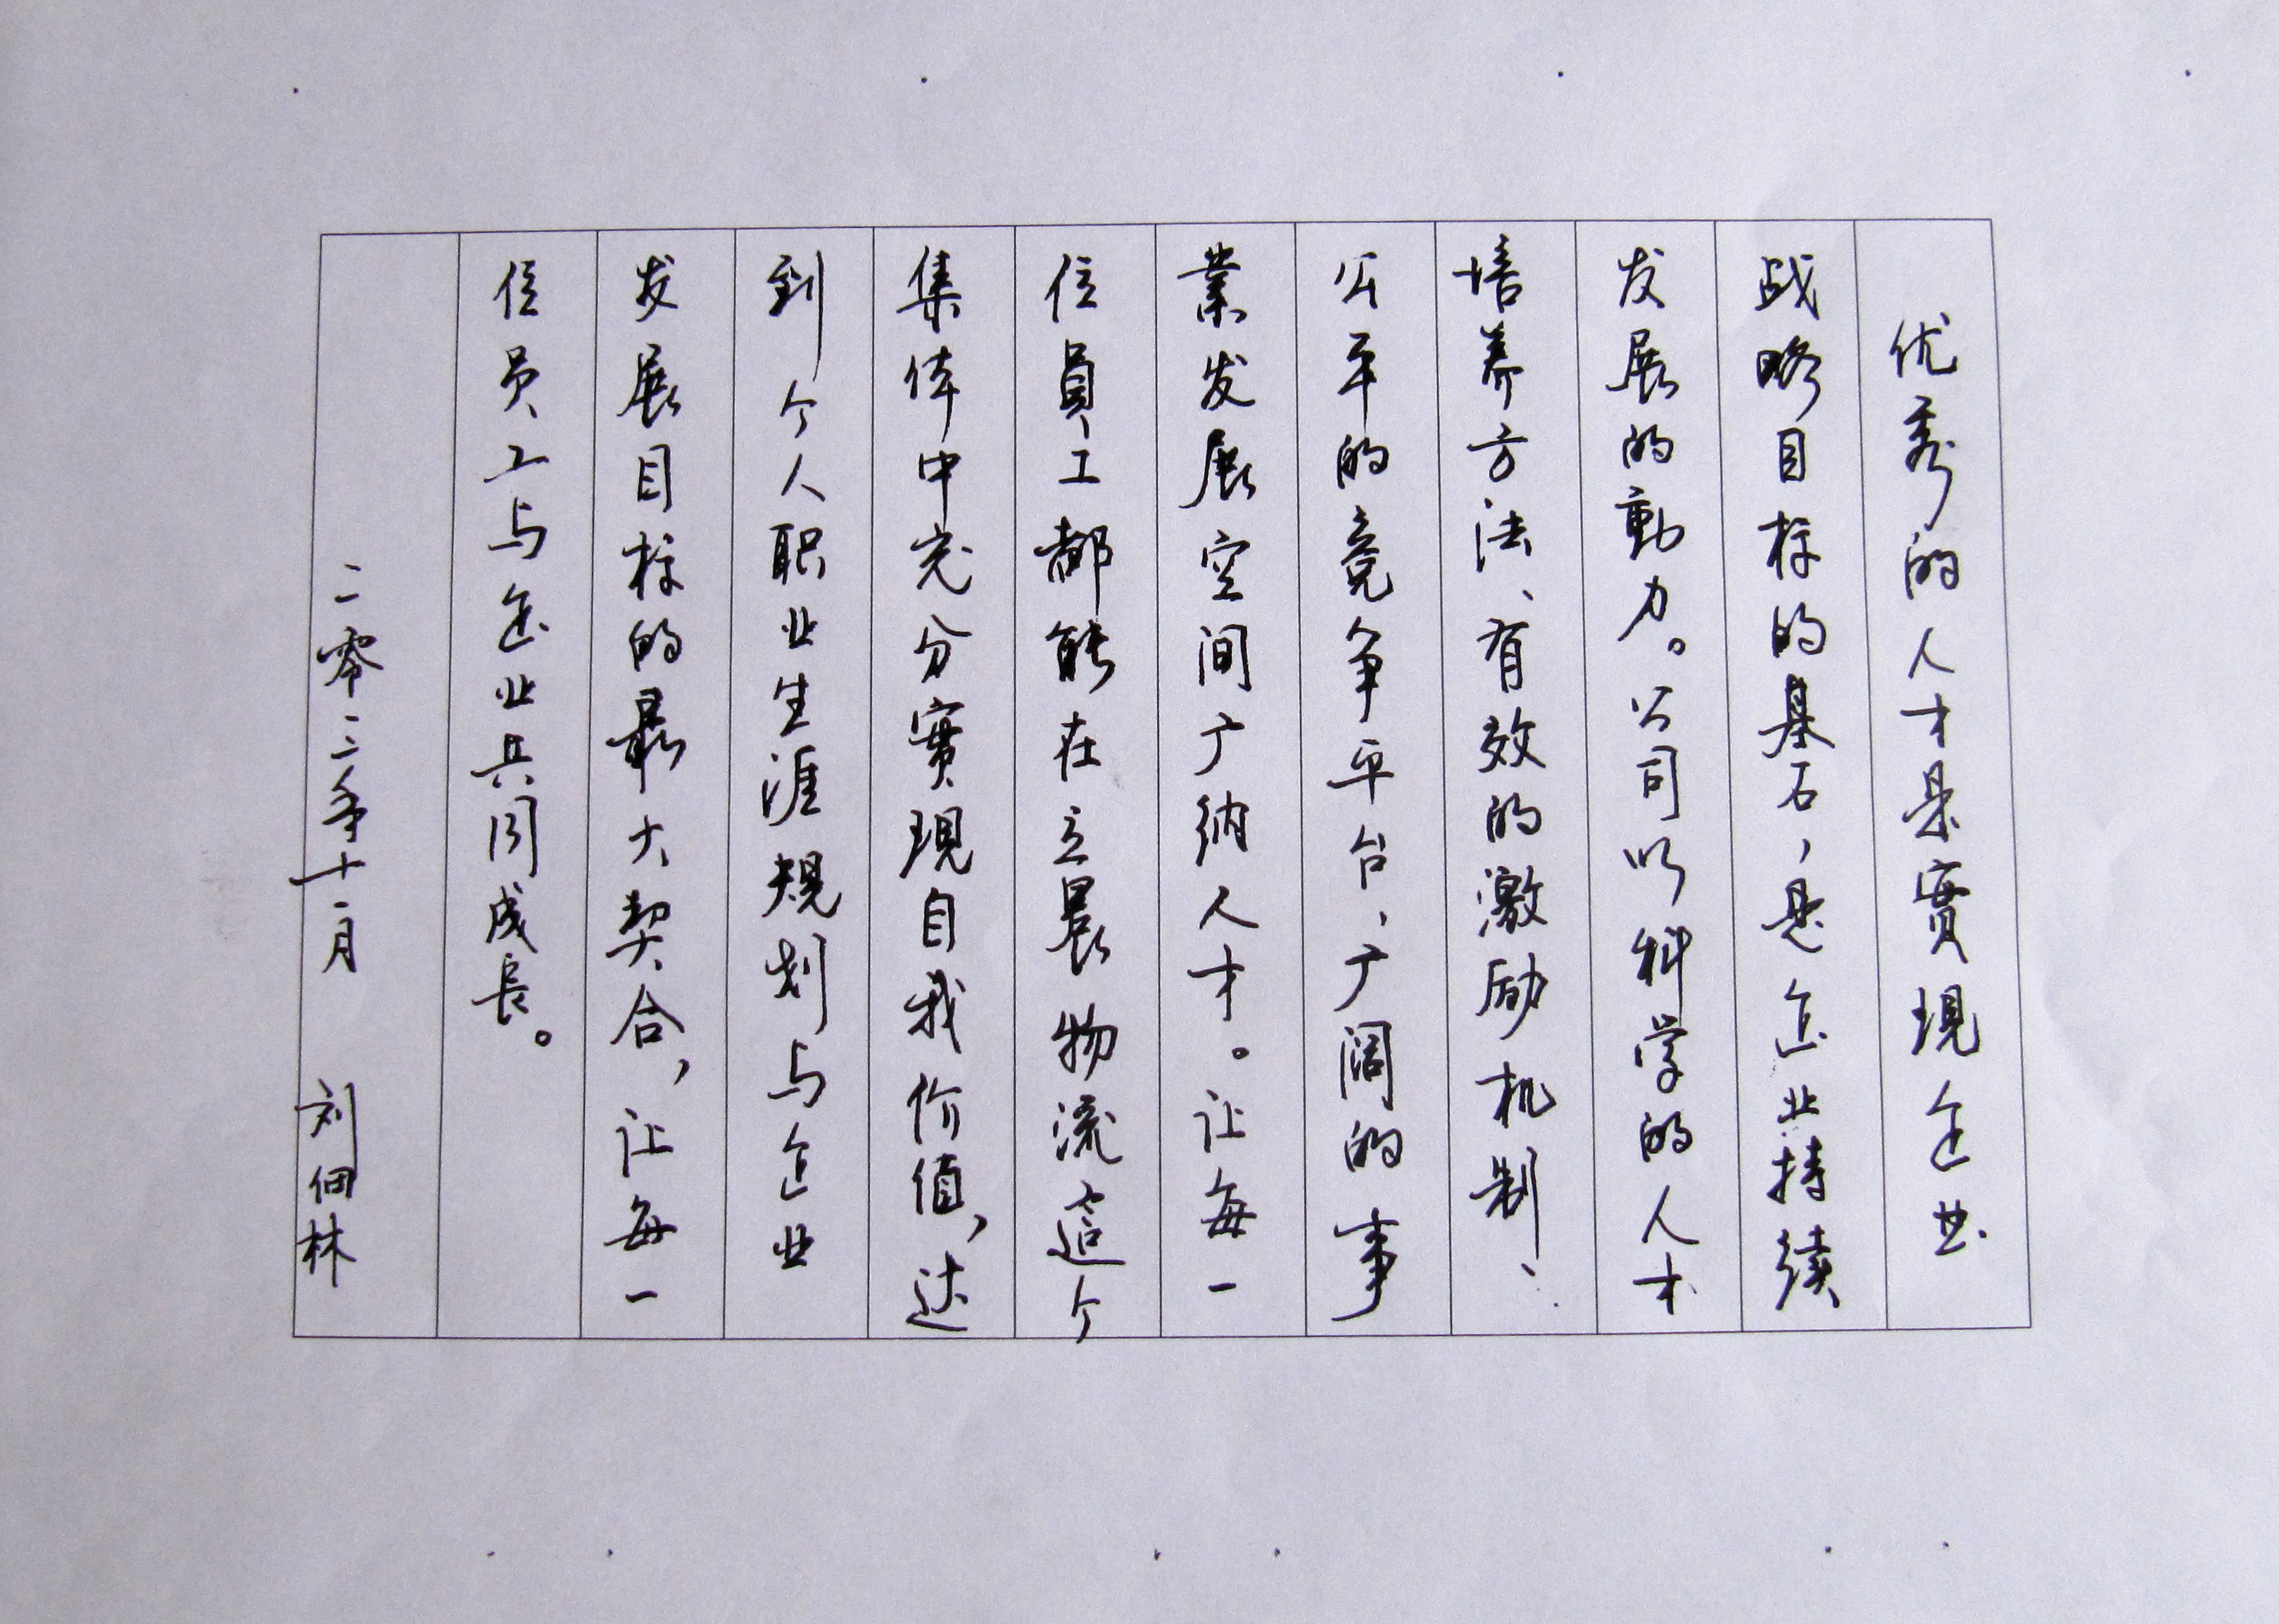 优秀的人才是實現企业
战略目标的基石，是企业持续
发展的動力。公司以科学的人才
培养方法、有效的激励机制、
公平的竞争平台、广阔的事
業发展空间广纳人才。让每一
位員工都能在立晨物流這个
集体中充分實現自我价值，达
到个人职业生涯規划与企业
发展目标的最大契合，让每一
位员工与企业共同成長。
二零二二年十一月 刘佃林